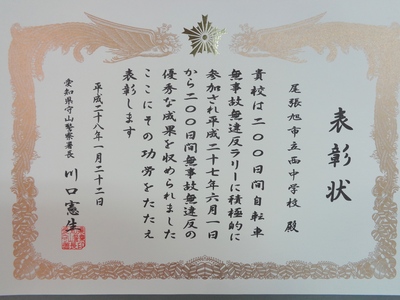 表彰状
尾張旭市立西中学校 殿
貴校は二〇〇日間自転車
無事故無違反ラリーに積極的に
参加され平成二十七年六月一日
から二〇〇日間無事故無違反の
優秀な成果を収められました
ここにその功労をたたえ
表彰します
平成二十八年一月二十二日
愛知県守山警察署長 川口憲生